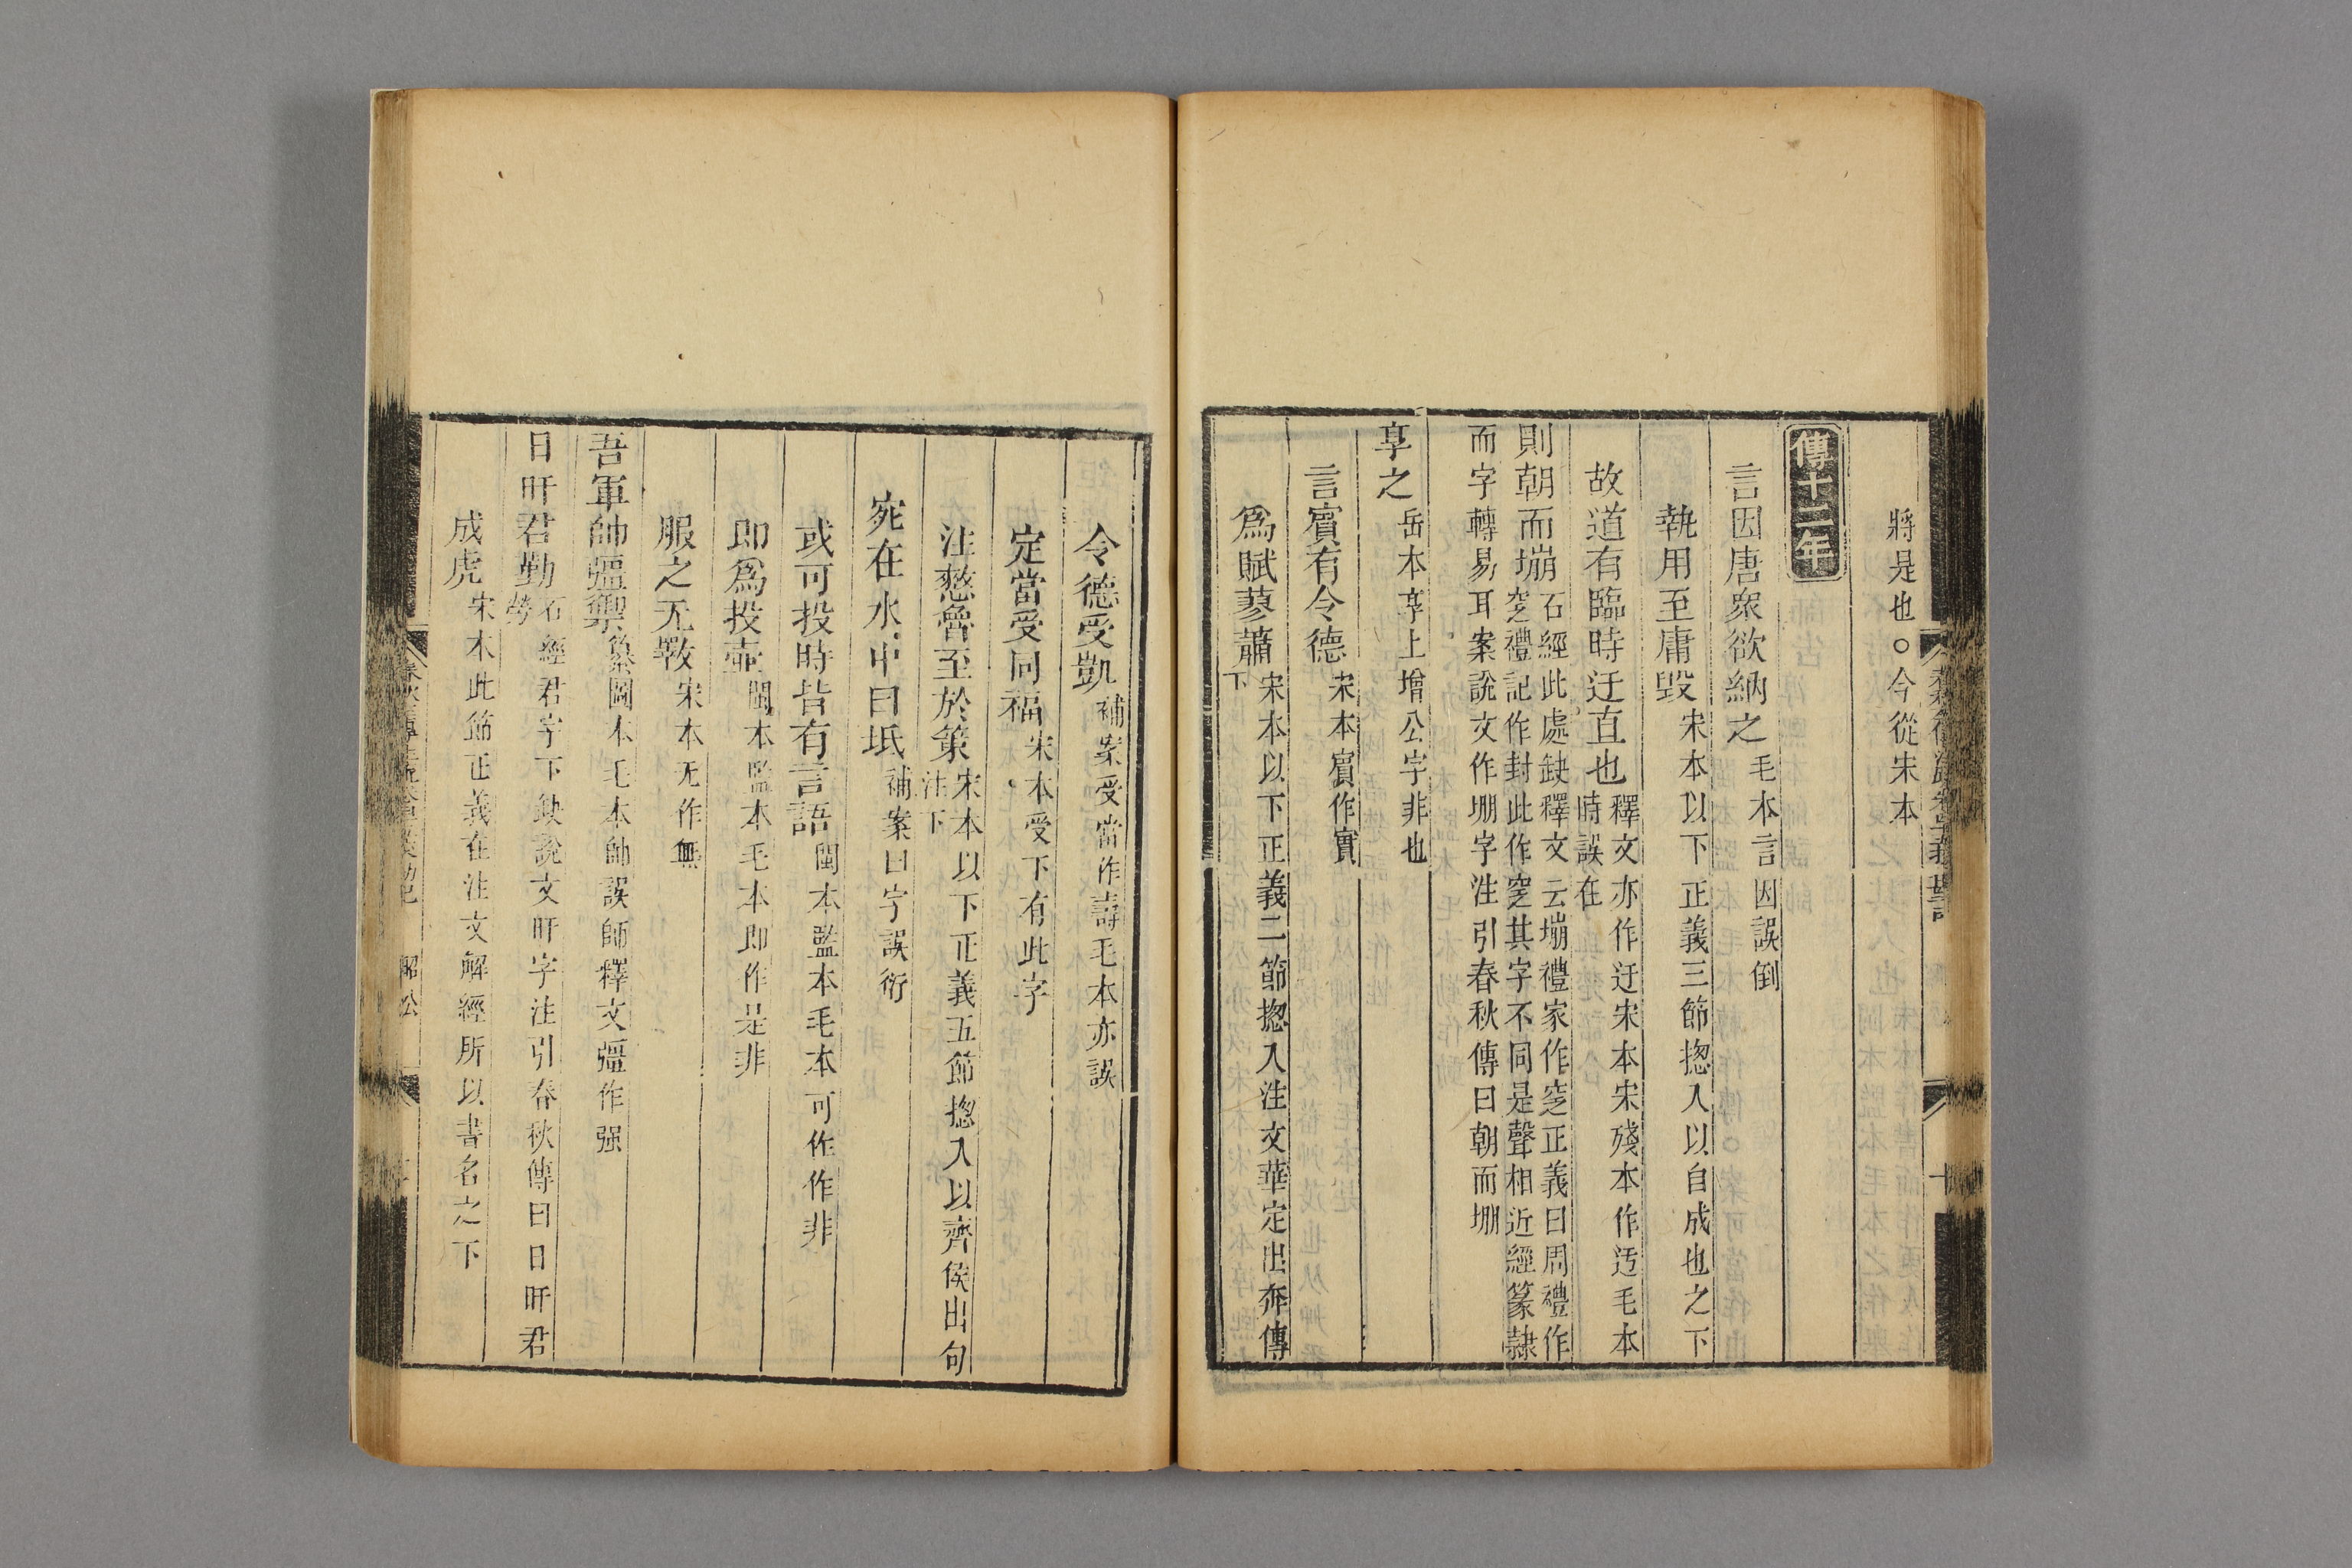 將是也○今從宋本
傳十二年
言因唐衆欲納之毛本言因誤倒
執用至庸毀宋本以下正義三節揔入以自成也之下
故道有臨時迂直也釋文亦作迂宋本宋殘本作迃毛本
時誤在
則朝而塴石經此處缺釋文云塴禮家作窆正義曰周禮作
窆禮記作封此作窆其字不同是聲相近經篆隸
而字轉易耳案說文作堋字注引春秋傳曰朝而堋
享之岳本享上增公字非也
言賓有令德宋本賓作實
爲賦蓼蕭宋本以下正義二節揔入注文華定出奔傳
下
令德受凱補案受當作壽毛本亦誤
定當受同福宋本受下有此字
注憖魯至於策宋本以下正義五節揔入以齊侯出句
注下
宛在水中曰坻補案曰字誤衍
或可投時皆有言語閩本監本毛本可作作非
即爲投壺閩本監本毛本即作是非
服之无斁宋本无作無
吾軍帥彊禦纂圖本毛本帥誤師釋文彊作强
日旰君勤石經君字下缺說文旰字注引春秋傳曰日旰君
勞
成虎宋本此節正義在注文解經所以書名之下
昭公